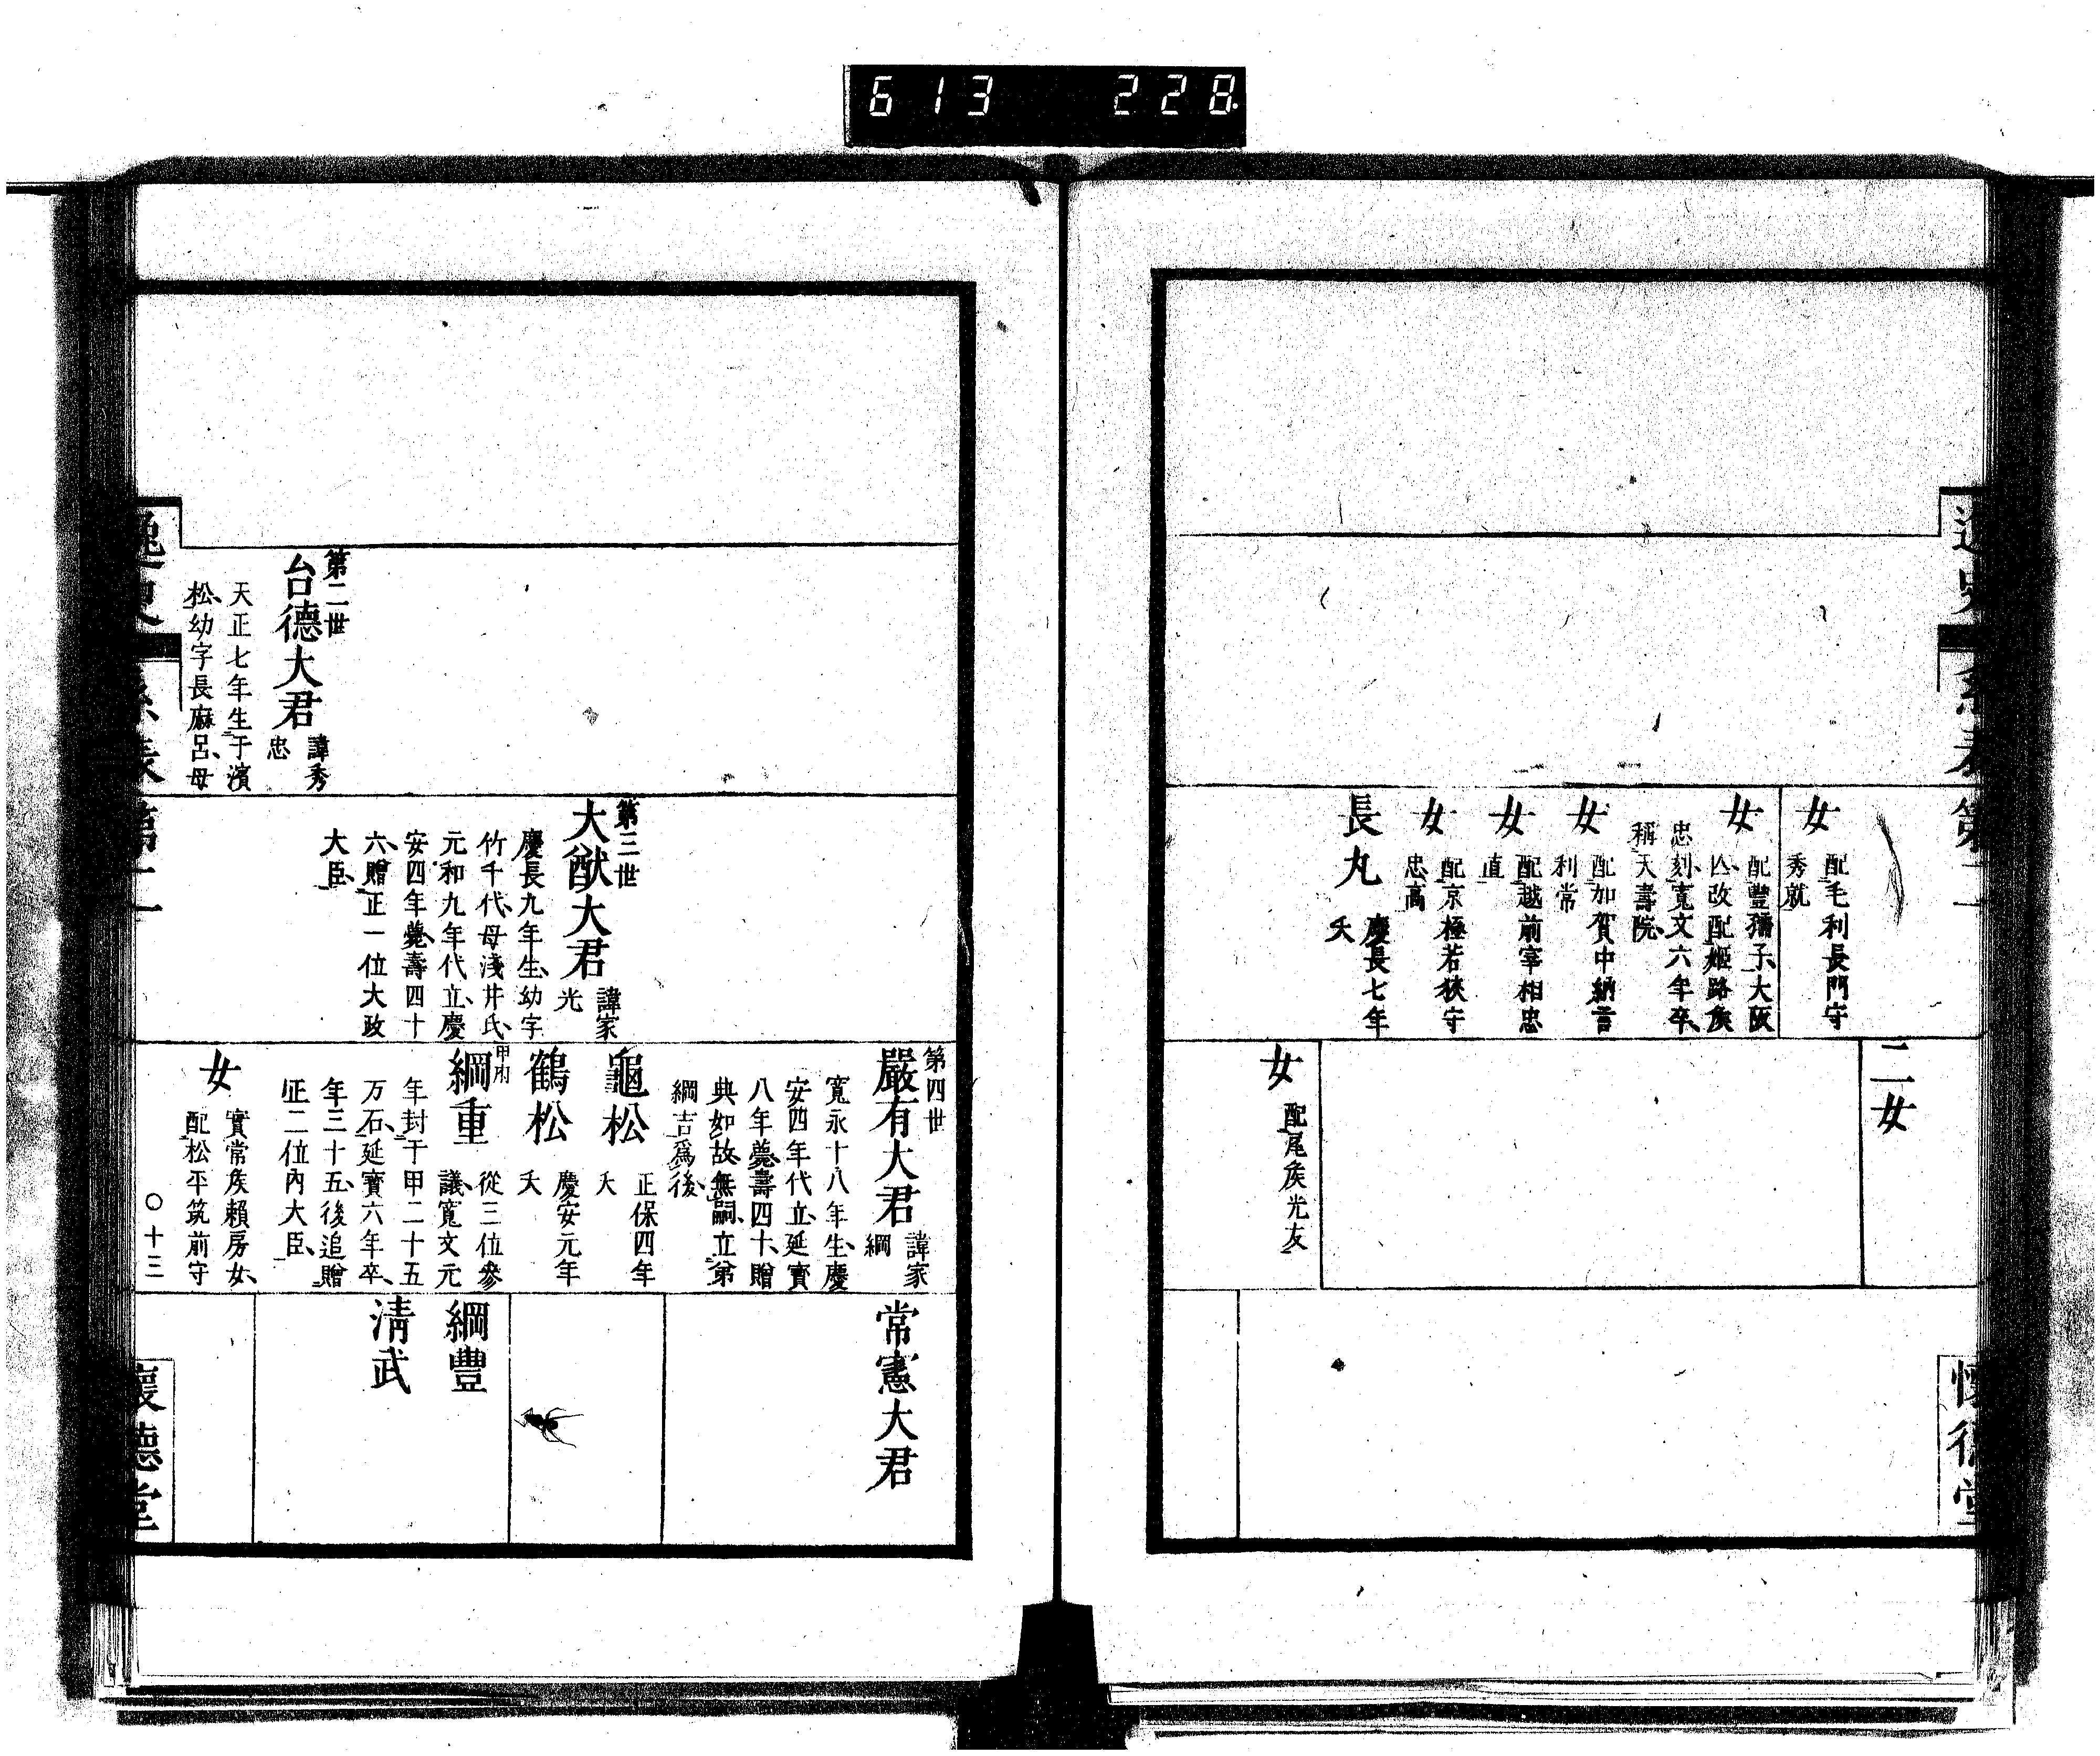 613 228.
逸史
系表第二
懷德堂
女
配毛利長門守
秀就
女
配豐獮子大阪
亾改配姬路矦
忠刻寬文六年卒
稱天壽院
女
配加賀中納言
利常
女
配越前宰相忠
直
女
配京極若狹守
忠高
長丸
慶長七年
夭
二女
女
配尾矦光友
第二世
台德大君
諱秀
忠
天正七年生于濱
松幼字長麻呂母
第三世
大猷大君
諱家
光
慶長九年生幼字
竹千代母淺井氏
元和九年代立慶
安四年薨壽四十
六贈正一位大政
大臣
第四世
嚴有大君
諱家
綱
寬永十八年生慶
安四年代立延寶
八年薨壽四十贈
典如故無嗣立弟
綱吉爲後
龜松
正保四年
夭
鶴松
慶安元年
夭
甲府
綱重
從三位參
議寬文元
年封于甲二十五
万石延寶六年卒
年三十五後追贈
正二位內大臣
女
實常矦賴房女
配松平筑前守
常憲大君
綱豐
清武
逸史
系表第二
〇十三
懷德堂